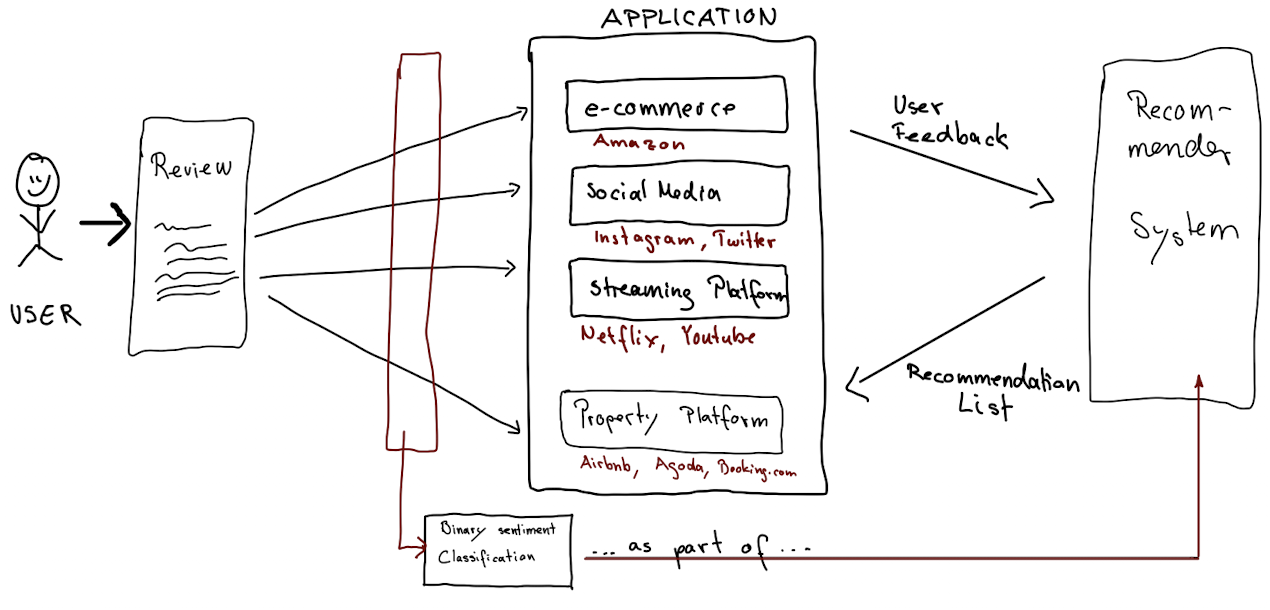 APPLICATION
USER
Review
e-commerce
Amazon
Social Media
Instagram, Twitter
Streaming Platform
Netflix, Youtube
Property Platform
Airbnb, Agoda, Booking.com
User
Feedback
Recommendation
List
Recom-
mender
System
Binary sentiment
Classification
... as part of ...